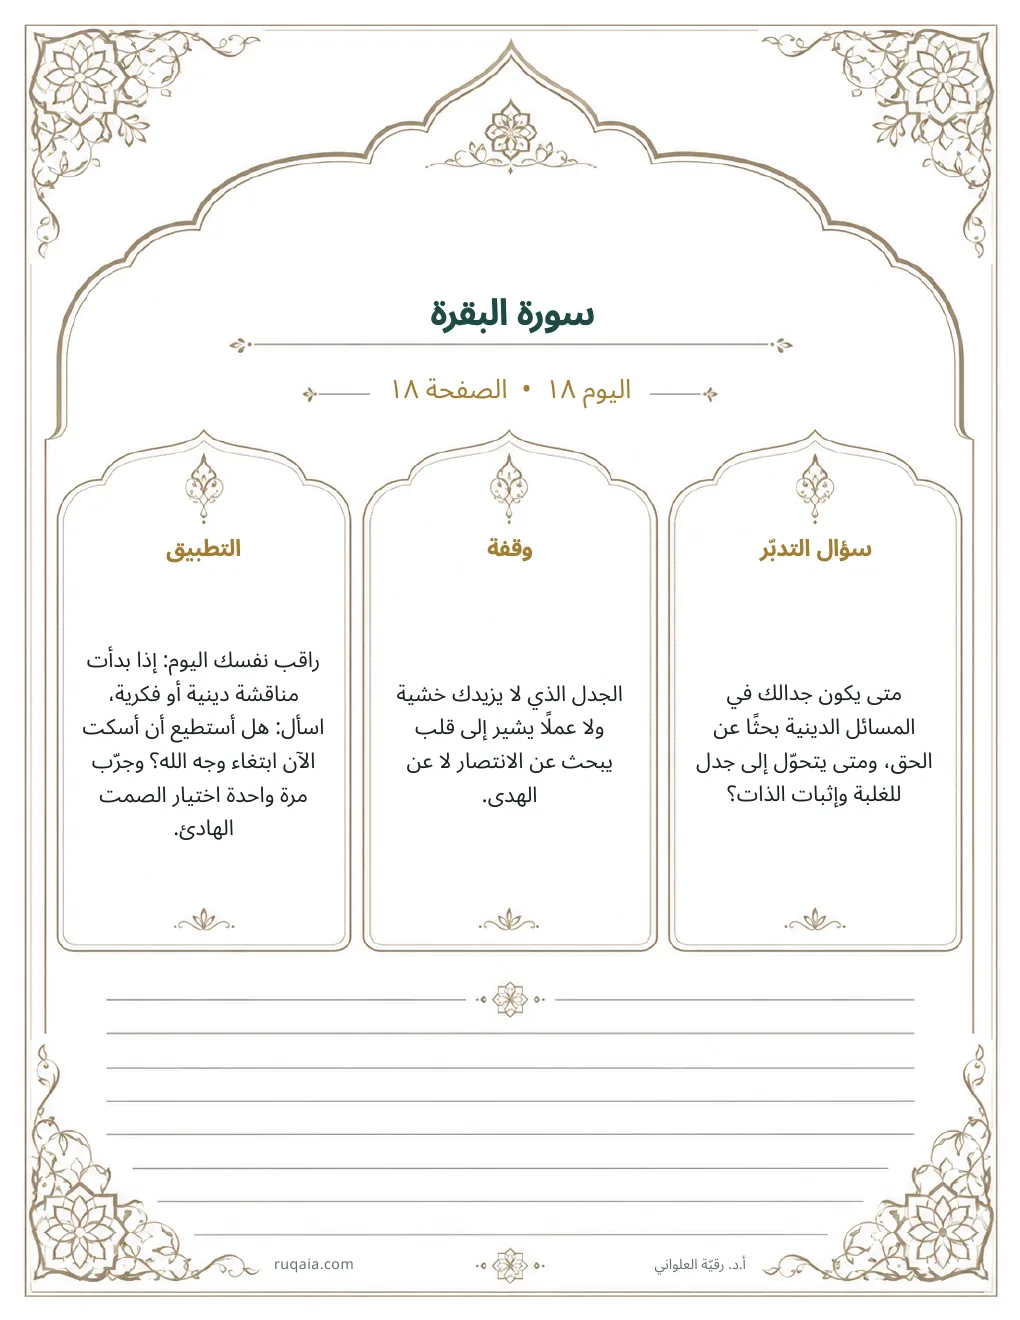 سورة البقرة
اليوم ١٨ • الصفحة ١٨
سؤال التدبّر
متى يكون جدالك في
المسائل الدينية بحثًا عن
الحق، ومتى يتحوّل إلى جدل
للغلبة وإثبات الذات؟
وقفة
الجدل الذي لا يزيدك خشية
ولا عملًا يشير إلى قلب
يبحث عن الانتصار لا عن
الهدى.
التطبيق
راقب نفسك اليوم: إذا بدأت
مناقشة دينية أو فكرية،
اسأل: هل أستطيع أن أسكت
الآن ابتغاء وجه الله؟ وجرّب
مرة واحدة اختيار الصمت
الهادئ.
أ.د. رقيّة العلواني
ruqaia.com